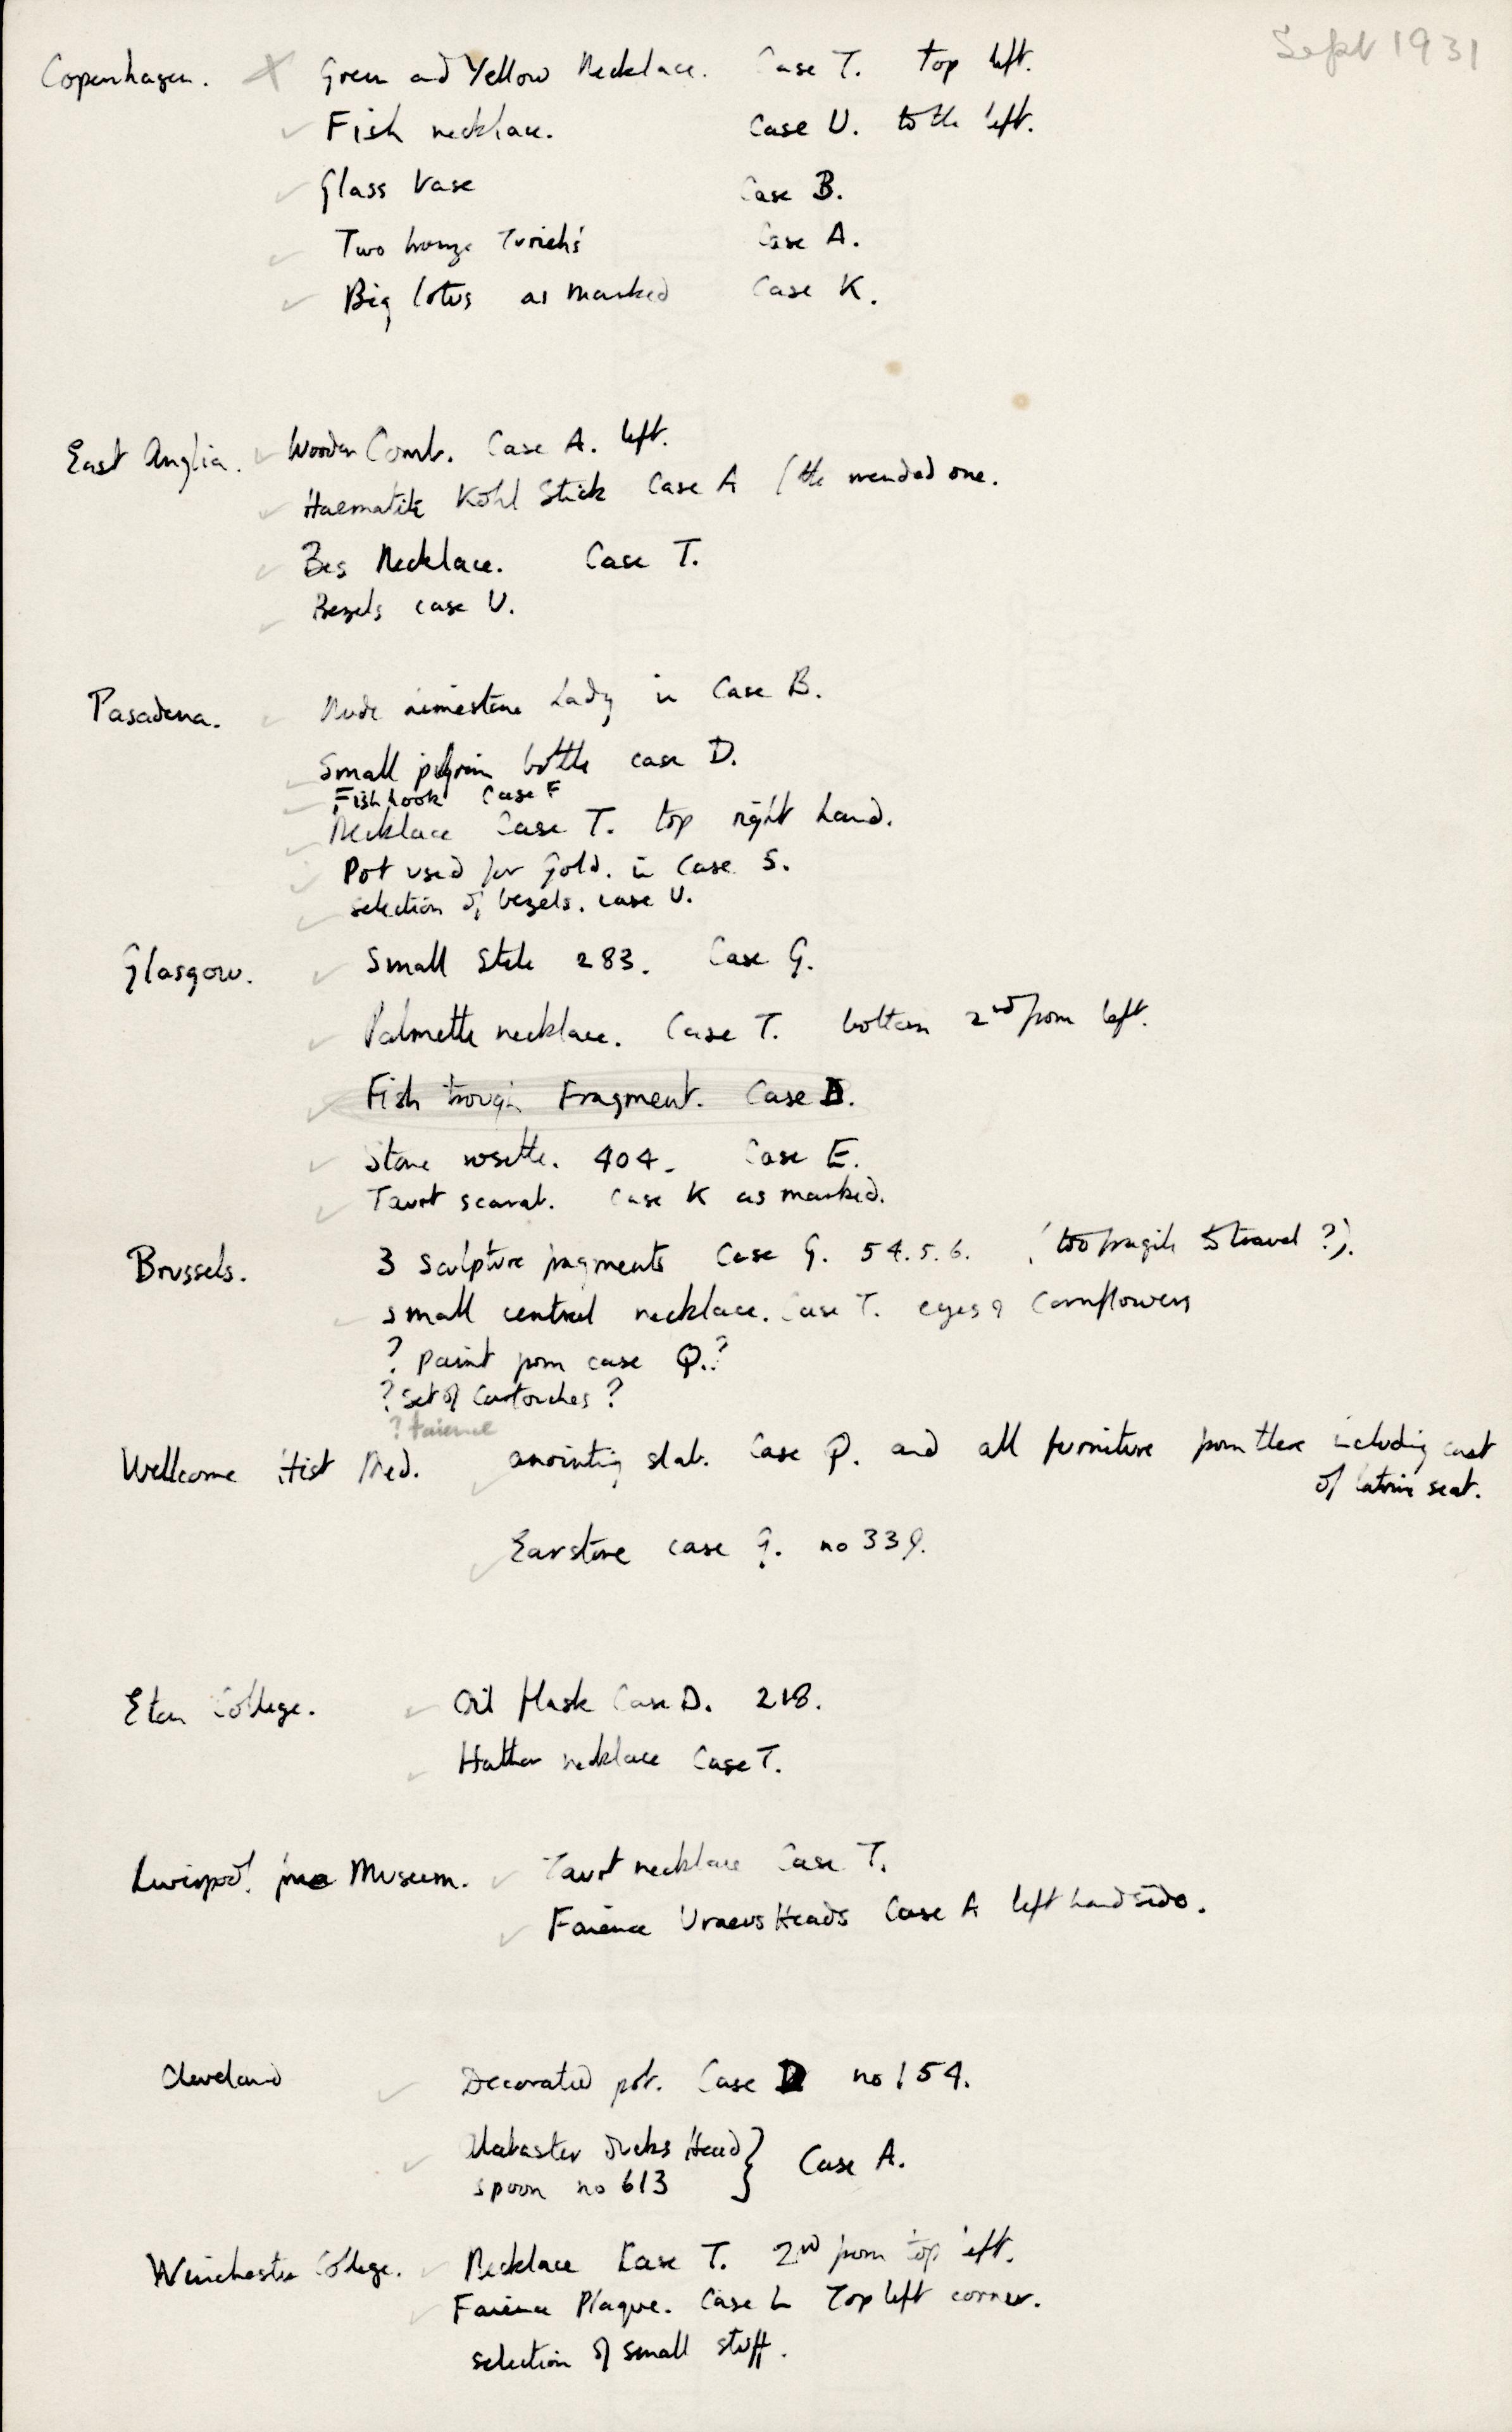 Sept 1931
Copenhagen. X Green and Yellow Necklace. Case T. Top left.
✓ Fish necklace. Case U. to the left.
✓ Glass Vase Case B.
✓ Two bronze Case A.
✓ Big lotus as marked Case K.
East Anglia. ✓ Wooden Comb. Case A. left.
✓ Haematite Kohl Stick Case A (the mended one.
✓ Bes Necklace. Case T.
✓ Bezels case U.
Pasadena. ✓ Nude Limestone Lady in Case B.
✓ Small pilgrim bottle case D.
✓ Fish hook Case F
✓ Necklace Case T. top right hand.
✓ Pot used for Gold. in Case S.
✓ selection of bezels. case U.
Glasgow. ✓ Small Stele 283. Case G.
✓ Palmette necklace. Case T. bottom 2nd from left.
✓ Fish trough Fragment. Case D.
✓ Stone rosette. 404. Case E.
✓ Taurt scarab. Case K as marked.
Brussels. 3 Sculpture fragments Case G. 54.5.6. (too fragile to travel?).
✓ small central necklace. Case T. eyes & Cornflowers
? Paint from case Q.?
? Set of Cartouches ?
? faience
Wellcome Hist Med. ✓ anointing slab. Case P. and all furniture from there including cast
of latrine seat.
✓ Ear stone case G. no 339.
Eton College. ✓ Oil Flask Case D. 218.
✓ Hathor necklace Case T.
Liverpool. Museum. ✓ Taurt necklace Case T.
✓ Faience Uraeus Heads Case A left hand side.
Cleveland ✓ Decorated pot. Case D no 154.
✓ Alabaster Ducks Head } Case A.
spoon no 613
Winchester College. ✓ Necklace Case T. 2nd from top left.
✓ Faience Plaque. Case L Top left corner.
selection of small stuff.